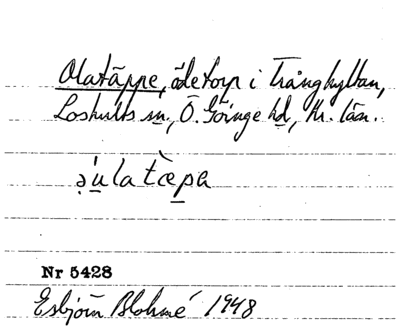 Olatäppe, ödetorp i Trånghyltan,
Loshults sn., Ö. Göinge hd, Kr. län.
Nr 5428
Esbjörn Blohmé 1948